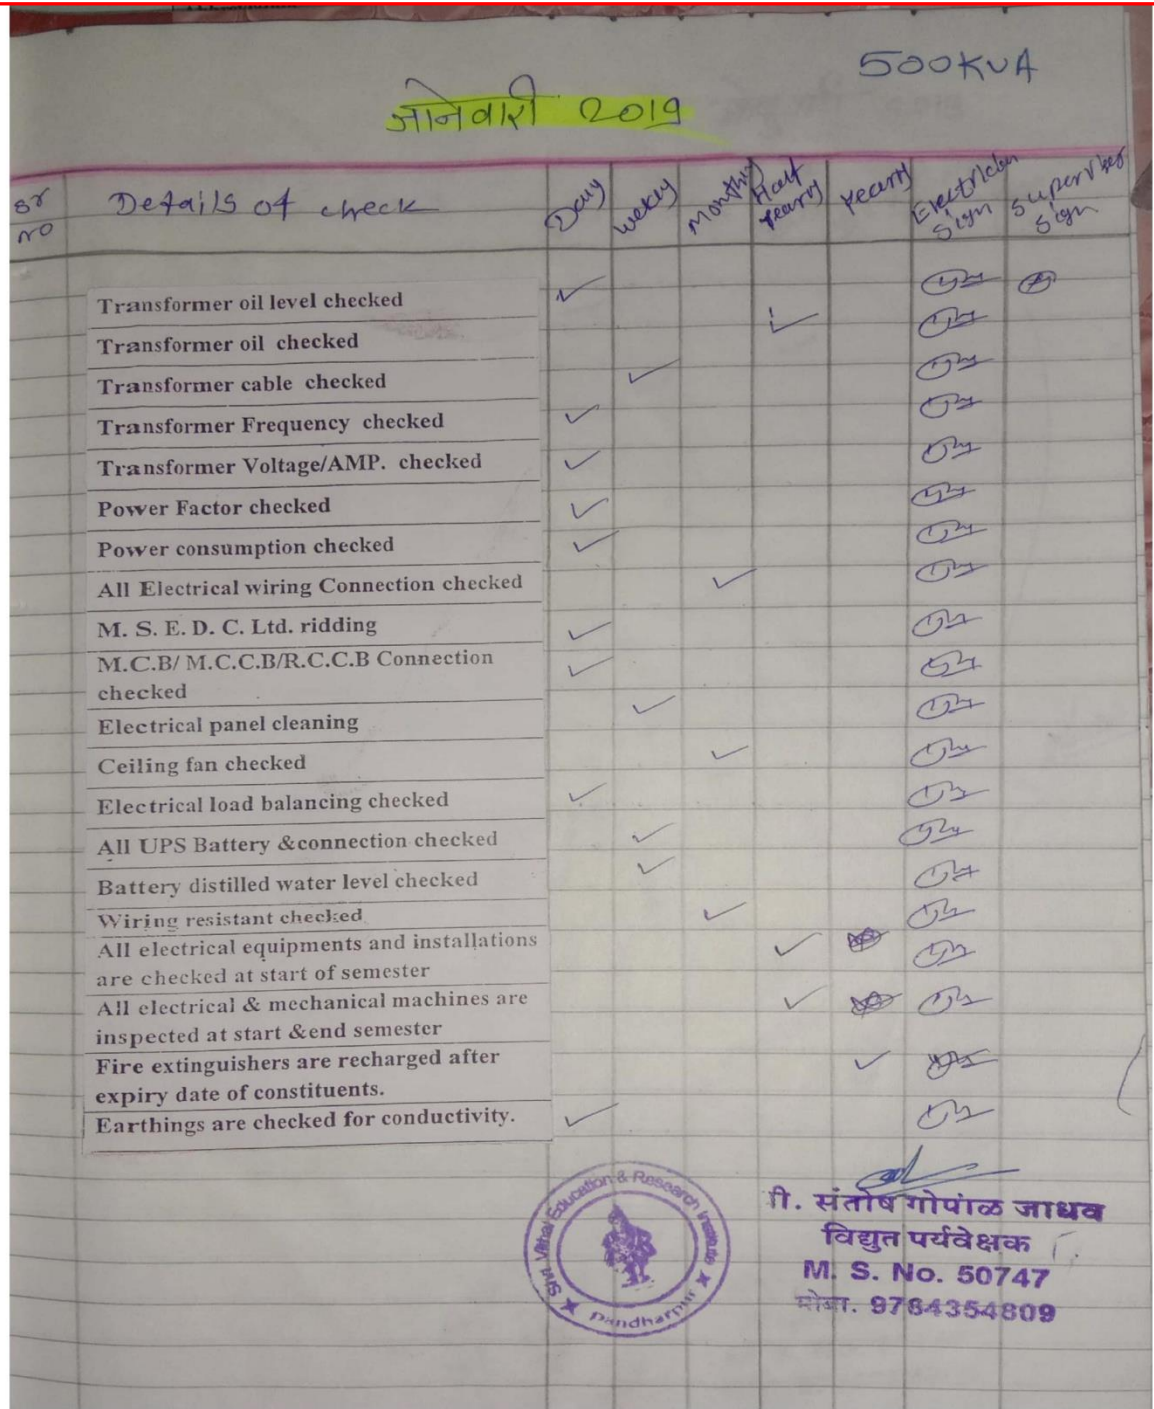 500KVA
जानेवारी 2019
sr no Details of check Daily weekly Monthly Half Yearly Yearly Electrician Sign Superviser Sign
Transformer oil level checked ✓
Transformer oil checked ✓
Transformer cable checked ✓
Transformer Frequency checked ✓
Transformer Voltage/AMP. checked ✓
Power Factor checked ✓
Power consumption checked ✓
All Electrical wiring Connection checked ✓
M. S. E. D. C. Ltd. ridding ✓
M.C.B/ M.C.C.B/R.C.C.B Connection
checked ✓
Electrical panel cleaning ✓
Ceiling fan checked ✓
Electrical load balancing checked ✓
All UPS Battery &connection checked ✓
Battery distilled water level checked ✓
Wiring resistant checked ✓
All electrical equipments and installations
are checked at start of semester ✓
All electrical & mechanical machines are
inspected at start &end semester ✓
Fire extinguishers are recharged after
expiry date of constituents. ✓
Earthings are checked for conductivity. ✓
Shri Vithal Education & Research Institute
Pandharpur
संतोष गोपाळ जाधव
विद्युत पर्यवेक्षक
M. S. No. 50747
मोबा. 9764354809